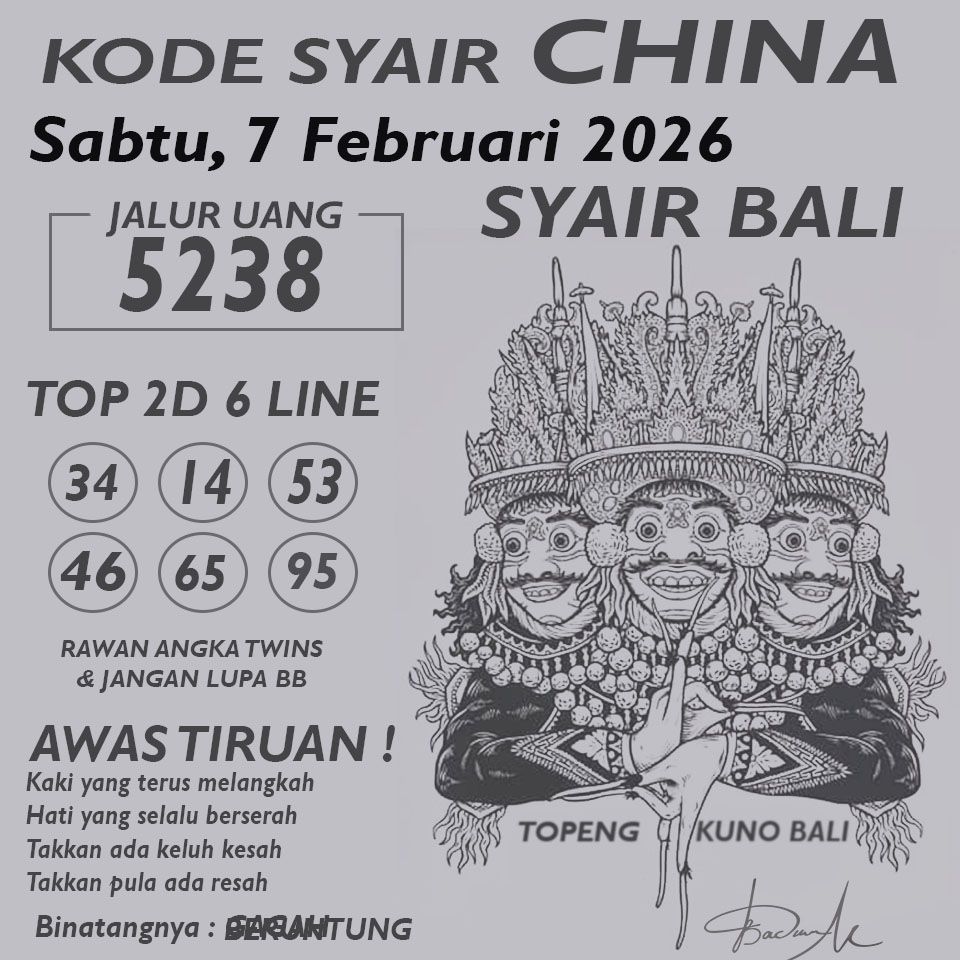 KODE SYAIR CHINA
Sabtu, 7 Februari 2026
SYAIR BALI
JALUR UANG
5238
TOP 2D 6 LINE
34 14 53
46 65 95
RAWAN ANGKA TWINS
& JANGAN LUPA BB
AWAS TIRUAN !
Kaki yang terus melangkah
Hati yang selalu berserah
Takkan ada keluh kesah
Takkan pula ada resah
Binatangnya : BERUNTUNG
TOPENG KUNO BALI